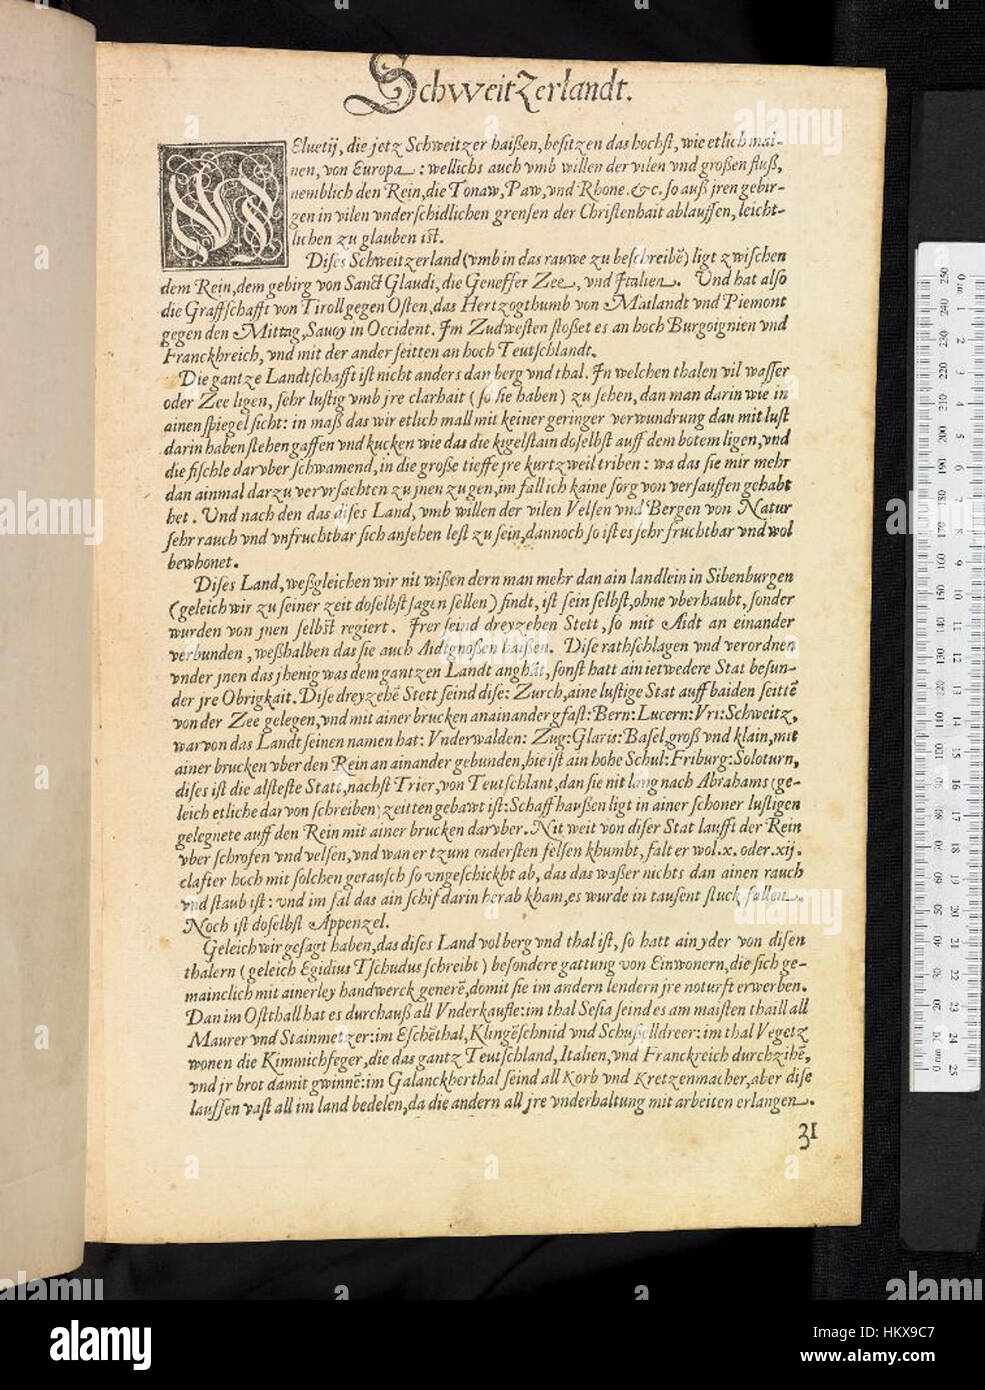 SchweitZerlandt.
HEluetij, die jetz Schweitzer haißen, besitzen das hochst, wie etlich mai-
nen, von Europa : wellichs auch vmb willen der vilen vnd großen fluß,
nemblich den Rein, die Tonaw, Paw, vnd Rhone. &c. so auß jren gebir-
gen in vilen vnderschidlichen grensen der Christenhait ablauffen, leicht-
lichen zu glauben ist.
Dises Schweitzerland (vmb in das rauwe zu beschreibẽ) ligt zwischen
dem Rein, dem gebirg von Sanct Glaudi, die Geneffer Zee, vnd Italien. Vnd hat also
die Graffschafft von Tiroll gegen Osten, das Hertzogthumb von Mailandt vnd Piemont
gegen den Mittag, Sauoy in Occident. Im Zudwesten stoßet es an hoch Burgoignien vnd
Franckhreich, vnd mit der ander seitten an hoch Teutschlandt.
Die gantze Landtschafft ist nicht anders dan berg vnd thal. In welchen thalen vil wasser
oder Zee ligen, sehr lustig vmb jre clarhait (so sie haben) zu sehen, dan man darin wie in
ainen spiegel sicht: in maß das wir etlich mall mit keiner geringer verwundrung dan mit lust
darin haben stehen gaffen vnd kucken wie das die kigelstain doselbst auff dem botem ligen, vnd
die fischle darvber schwamend, in die große tieffe jre kurtzweil triben : wa das sie mir mehr
dan ainmal darzu vervrsachten zu jnen zugen, im fall ich kaine sorg von versauffen gehabt
het. Vnd nach den das dises Land, vmb willen der vilen Velsen vnd Bergen von Natur
sehr rauch vnd vnfruchtbar sich ansehen lest zu sein, dannoch so ist es sehr fruchtbar vnd wol
bewhonet.
Dises Land, weßgleichen wir nit wißen dern man mehr dan ain landlein in Sibenburgen
(geleich wir zu seiner zeit doselbst sagen sellen) findt, ist sein selbst, ohne vberhaubt, sonder
wurden von jnen selbst regiert. Irer seind dreyzehen Stett, so mit Aidt an einander
verbunden, weßhalben das sie auch Aidtgnoßen haißen. Dise rathschlagen vnd verordnen
vnder jnen das jhenig was dem gantzen Landt anghat, sonst hatt ain ietwedere Stat besun-
der jre Obrigkait. Dise dreyzehẽ Stett seind dise: Zurch, aine lustige Stat auff baiden seittẽ
von der Zee gelegen, vnd mit ainer brucken anainander gfast: Bern: Lucern: Vri: Schweitz,
war von das Landt seinen namen hat: Vnderwalden: Zug: Glaris: Basel, groß vnd klain, mit
ainer brucken vber den Rein an ainander gebunden, hie ist ain hohe Schul: Friburg: Soloturn,
dises ist die alsteste Statt, nachst Trier, von Teutschlant, dan sie nit lang nach Abrahams (ge-
leich etliche dar von schreiben) zeitten gebawt ist: Schaffhaußen ligt in ainer schoner lustigen
gelegnete auff den Rein mit ainer brucken darvber. Nit weit von diser Stat laufft der Rein
vber schrofen vnd velsen, vnd wan er tzum ondersten felsen khumbt, falt er wol .x. oder .xij.
clafter hoch mit solchen gerausch so vngeschickht ab, das das waßer nichts dan ainen rauch
vnd staub ist : vnd im fal das ain schif darin herab kham, es wurde in tausent stuck fallen.
Noch ist doselbst Appenzel.
Geleich wir gesagt haben, das dises Land vol berg vnd thal ist, so hatt ain yder von disen
thalern (geleich Egidius Tschudus schreibt) besondere gattung von Einwonern, die sich ge-
mainclich mit ainerley handwerck generẽ, domit sie im andern lendern jre noturft erwerben.
Dan im Ostthall hat es durchauß all Vnderkaufle: im thal Sesia seind es am maisten thaill all
Maurer vnd Stainmetzer: im Eschẽthal, Klingẽschmid vnd Schußelldreer: im thal Vegetz
wonen die Kimmichfeger, die das gantz Teutschland, Italien, vnd Franckreich durchzihẽ,
vnd jr brot damit gwinnẽ: im Galanckherthal seind all Korb vnd Kretzenmacher, aber dise
lauffen vast all im land bedelen, da die andern all jre vnderhaltung mit arbeiten erlangen.
31
alamy
www.alamy.com
HKX9C7